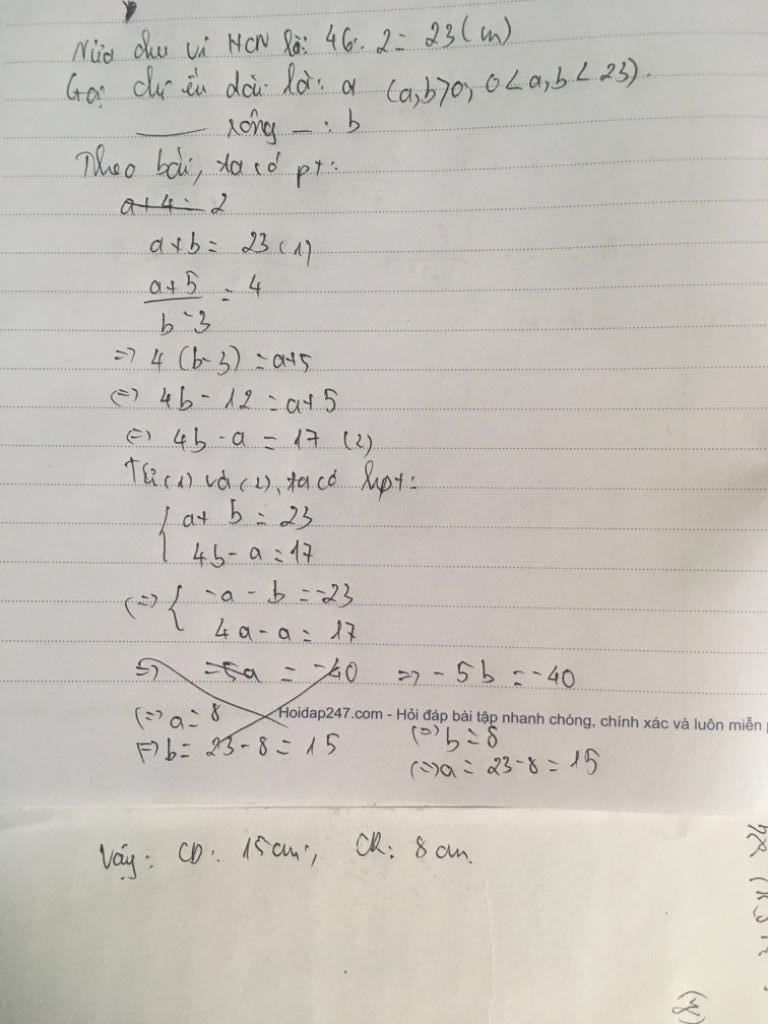 Nửa chu vi HCN là: 46:2 = 23(m)
Gọi chiều dài là: a (a,b>0, 0<a,b<23).
rộng _: b
Theo bài, ta có pt:
a+4=2
a+b = 23 (1)
a+5 / b-3 = 4
=> 4 (b-3) = a+5
(=) 4b - 12 = a+5
(=) 4b - a = 17 (2)
Từ (1) và (2), ta có hpt:
{ a+ b = 23
4b - a = 17
(=> { -a - b = -23
4a - a = 17
=> -5a = -40 => -5b = -40
(=> a = 8
Hoidap247.com - Hỏi đáp bài tập nhanh chóng, chính xác và luôn miễn
(=> b = 8
=> b = 23-8 = 15
(=> a = 23-8 = 15
Vậy: CD: 15cm;, CR: 8 cm.